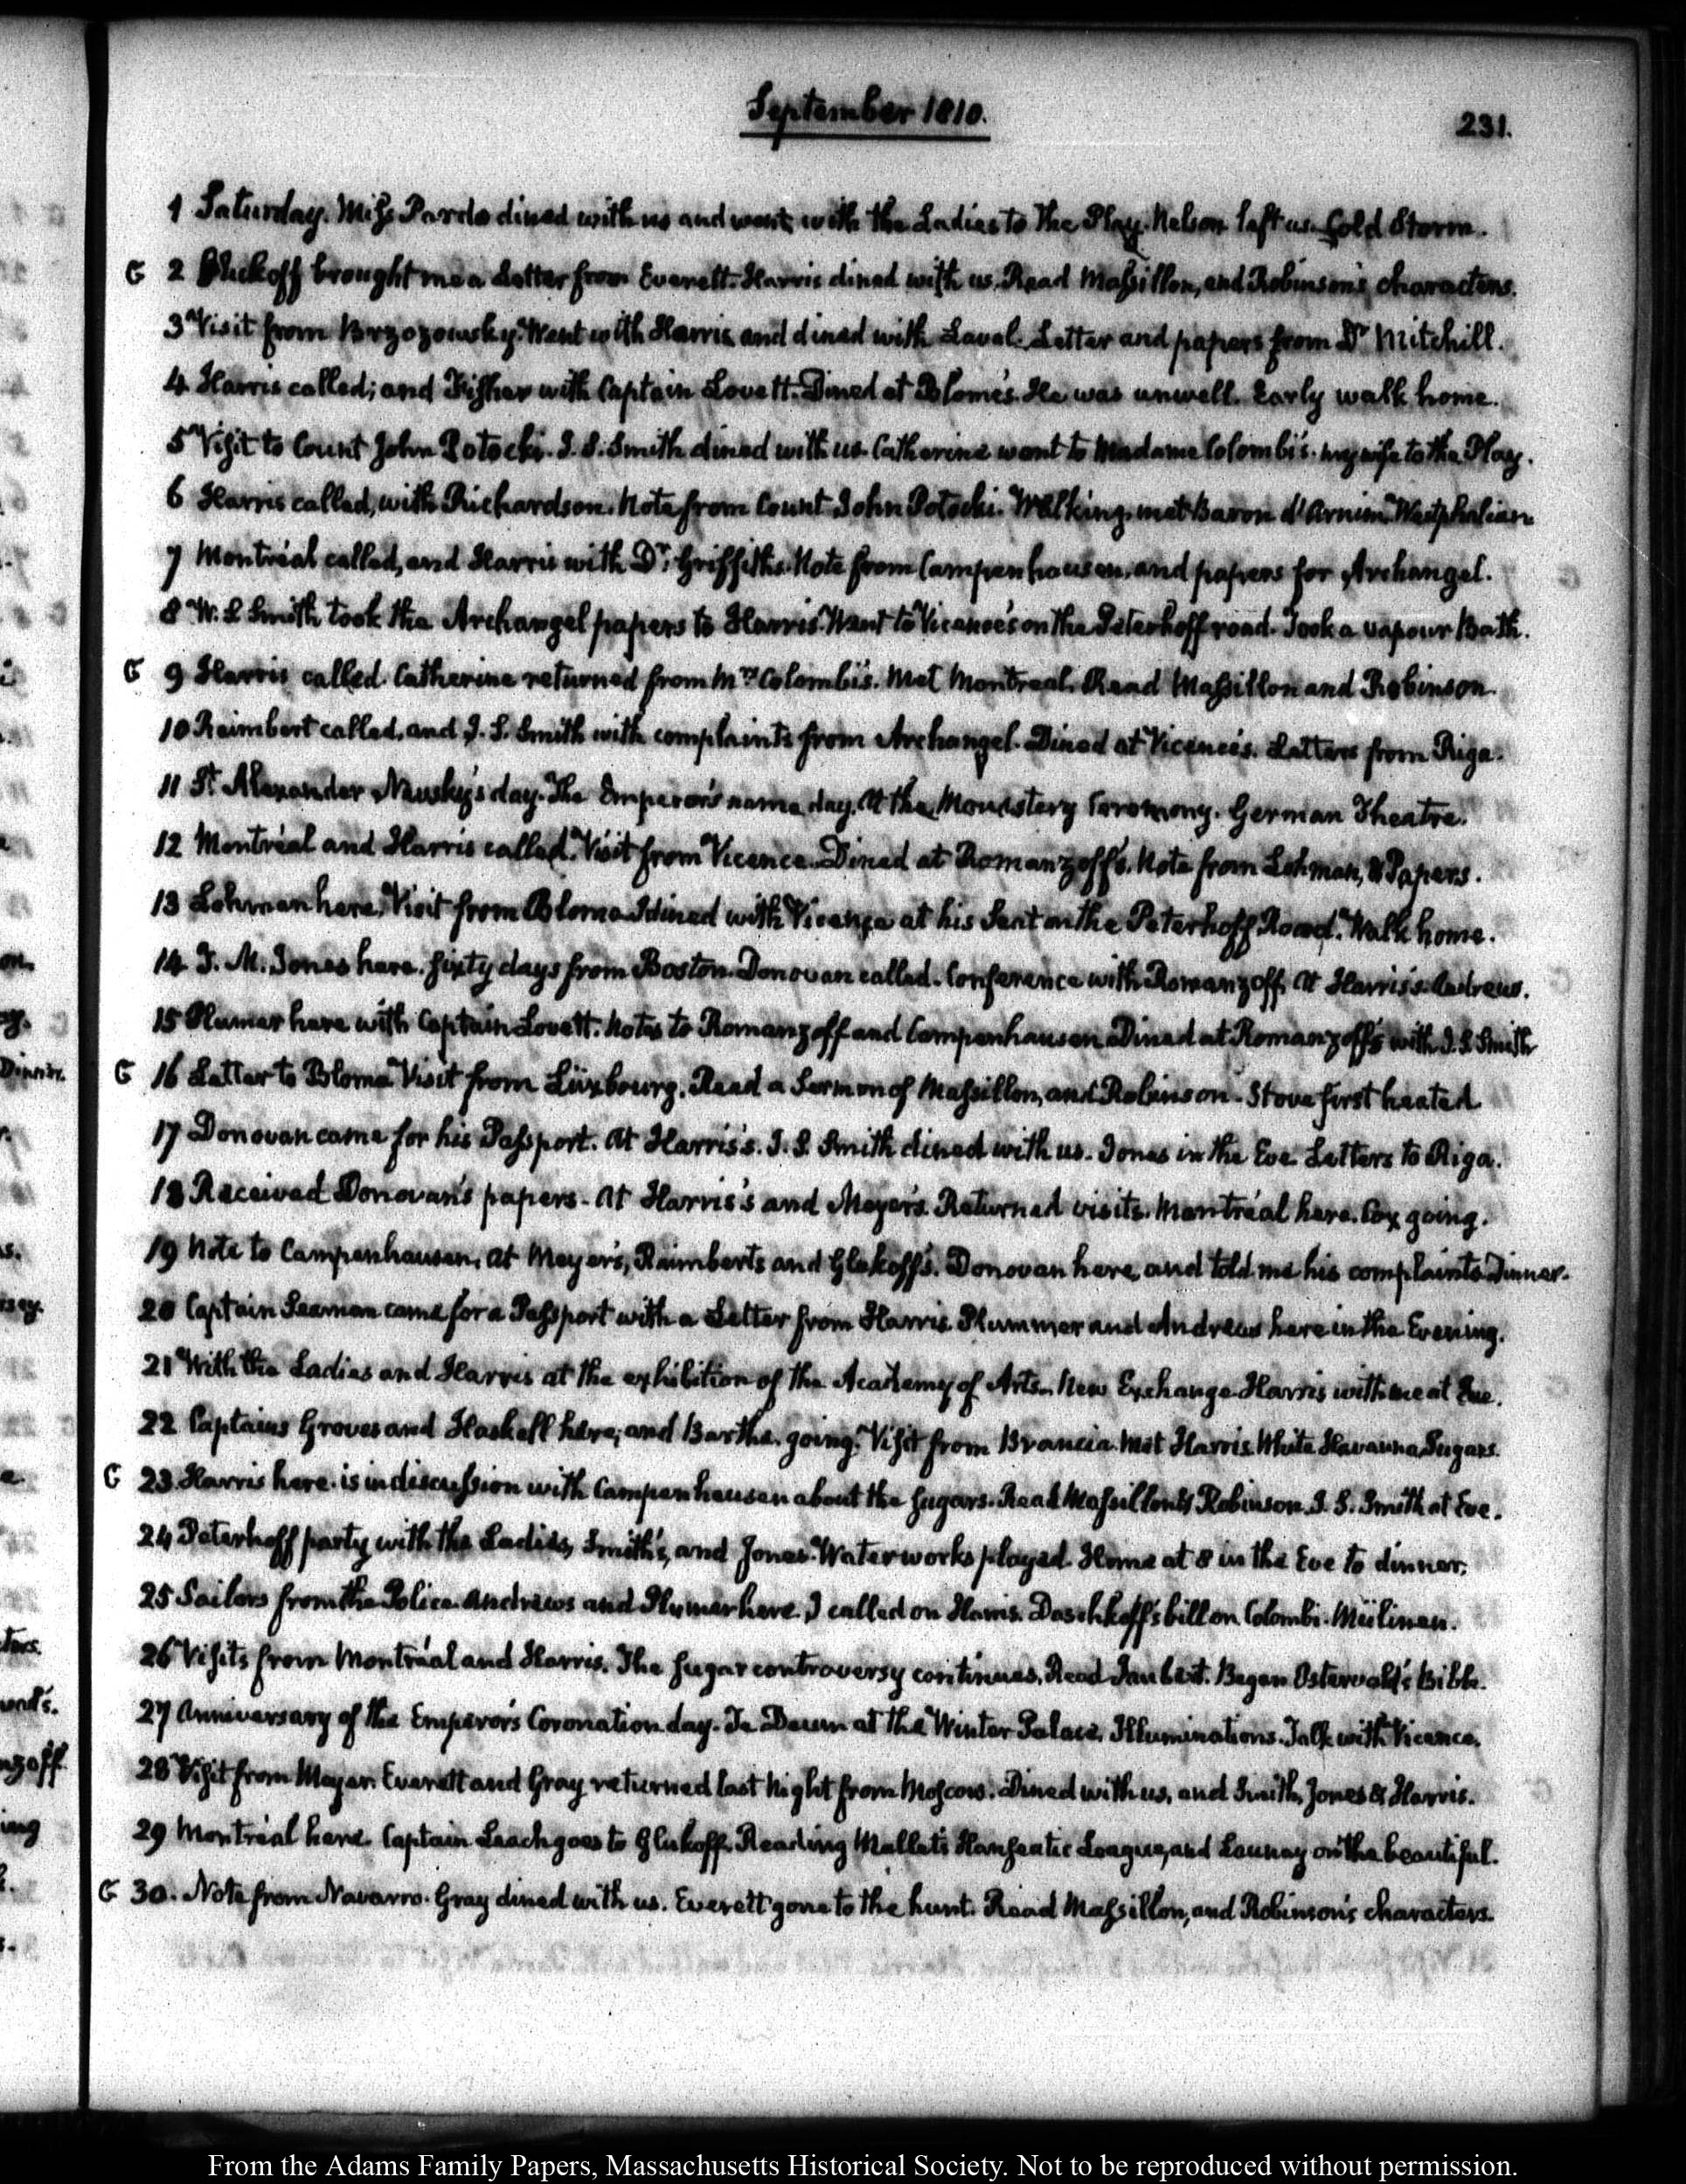 September 1810.
231.
1 Saturday. Miss Pardo dined with us and went with the Ladies to the Play. Nelson left us. Cold Storm.
G 2 Glukoff brought me a Letter from Everett. Harris dined with us. Read Massillon, and Robinson's characters.
3 Visit from Brzozowsky. Went with Harris and dined with Laval. Letter and papers from Dr Mitchill.
4 Harris called; and Fisher with Captain Lovett. Dined at Blome's. He was unwell. Early walk home.
5 Visit to Count John Potocki. J. S. Smith dined with us. Catherine went to Madame Colombi's. my wife to the Play.
6 Harris called, with Richardson. Note from Count John Potocki. Walking, met Baron d'Arnim. Westphalian
7 Montréal called, and Harris with Dr Griffiths. Note from Campenhausen, and papers for Archangel.
8 W. S. Smith took the Archangel papers to Harris. Went to Vicence's on the Peterhoff road. Took a vapour Bath.
G 9 Harris called. Catherine returned from Mrs Colombi's. Met Montreal. Read Massillon and Robinson.
10 Raimbert called, and J. S. Smith with complaints from Archangel. Dined at Vicence's. Letters from Riga.
11 St Alexander Newsky's day. The Emperor's name day. At the Monastery Ceremony. German Theatre.
12 Montréal and Harris called. Visit from Vicence. Dined at Romanzoff's. Note from Lohman, & Papers.
13 Lohman here. Visit from Blome. I dined with Vicence at his Seat on the Peterhoff Road. Walk home.
14 T. M. Jones here. sixty days from Boston. Donovan called. Conference with Romanzoff. At Harris's. Andrews.
15 Plumer here with Captain Lovett. Notes to Romanzoff and Campenhausen. Dined at Romanzoff's with J. S. Smith
G 16 Letter to Blome. Visit from Lüxbourg. Read a Sermon of Massillon, and Robinson. Stove first heated
17 Donovan came for his Passport. At Harris's. J. S. Smith dined with us. Jones in the Eve. Letters to Riga.
18 Received Donovan's papers. At Harris's and Meyer's. Returned visits. Montréal here. Cox going.
19 Note to Campenhausen. at Meyer's, Raimberts and Glukoff's. Donovan here, and told me his complaints. Dinner.
20 Captain Seaman came for a Passport with a Letter from Harris. Plummer and Andrews here in the Evening.
21 With the Ladies and Harris at the exhibition of the Academy of Arts. New Exchange. Harris with me at Eve.
22 Captains Groves and Haskell here; and Barthe. going. Visit from Brancia. Met Harris. White Havanna Sugars.
G 23 Harris here. is in discussion with Campenhausen about the sugars. Read Massillon & Robinson. J. S. Smith at Eve.
24 Peterhoff party with the Ladies, Smith's, and Jones. Water works played. Home at 8 in the Eve to dinner.
25 Sailors from the Police. Andrews and Plumer here. I called on Harris. Daschkoff's bill on Colombi. Müilinen.
26 Visits from Montréal and Harris. The sugar controversy continues. Read Jaubert. Began Ostervald's Bible.
27 Anniversary of the Emperor's Coronation day. Te Deum at the Winter Palace. Illuminations. Talk with Vicence.
28 Visit from Meyer. Everett and Gray returned last Night from Moscow. Dined with us, and Smith, Jones & Harris.
29 Montréal here. Captain Leach goes to Glukoff. Reading Mallet's Hanseatic League, and Launay on the beautiful.
G 30. Note from Navarro. Gray dined with us. Everett gone to the hunt. Read Massillon, and Robinson's characters.
From the Adams Family Papers, Massachusetts Historical Society. Not to be reproduced without permission.